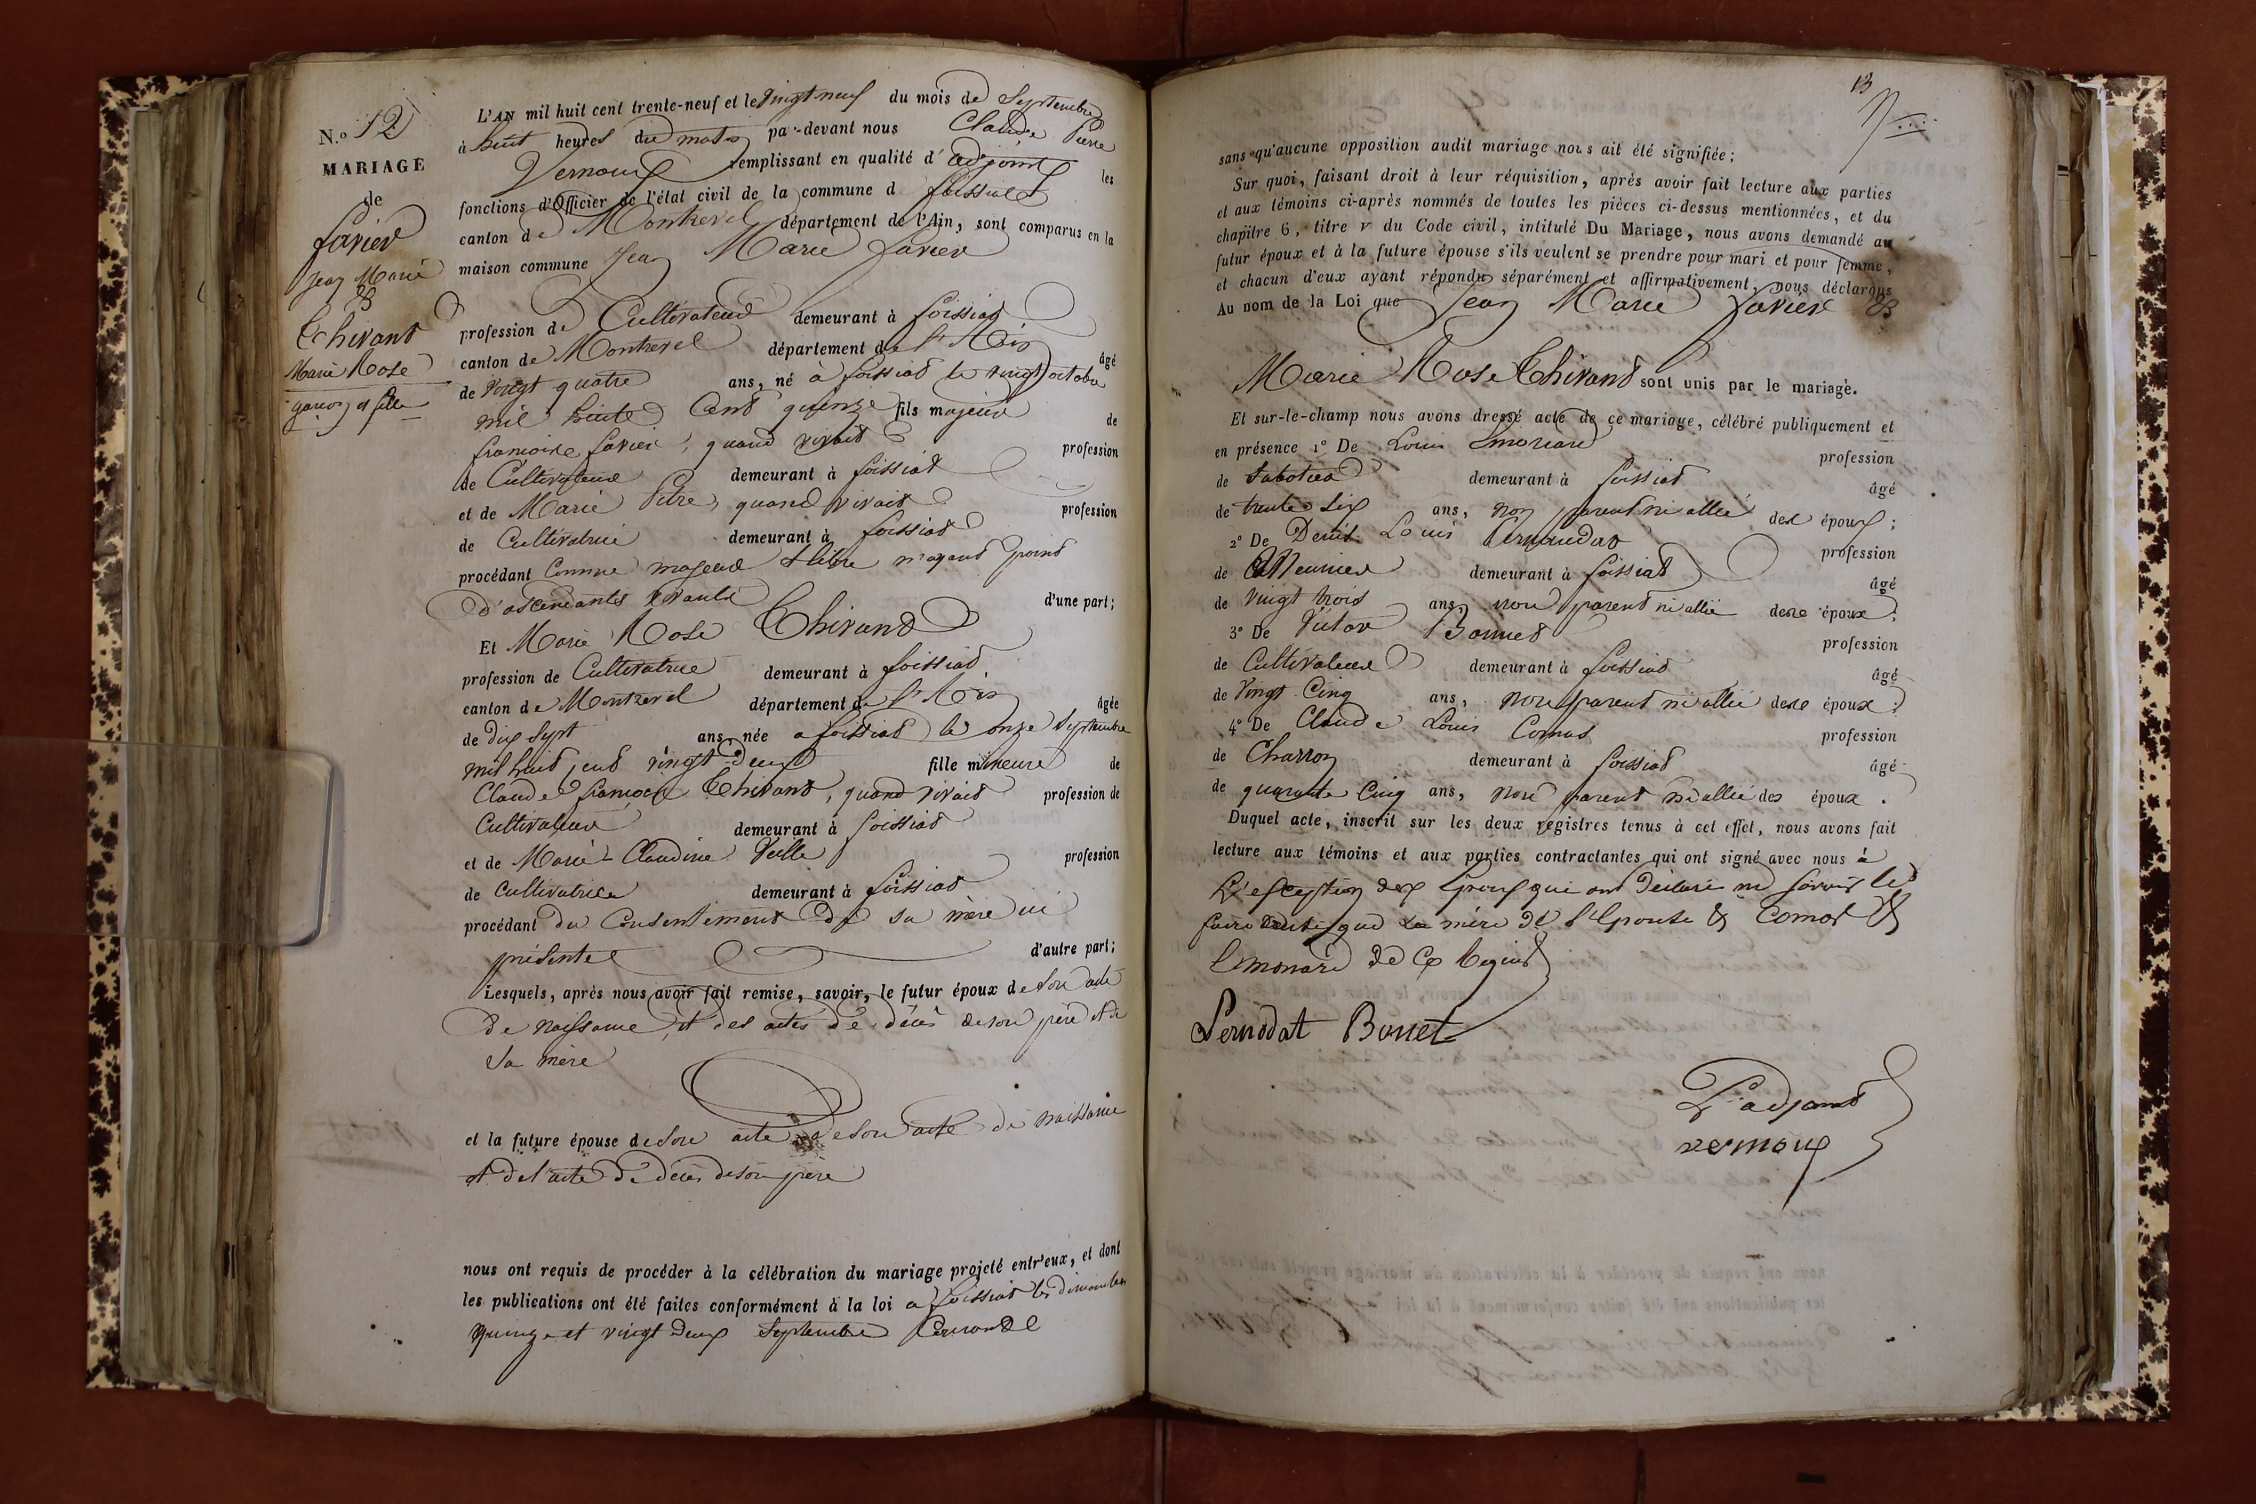 N.o 12
MARIAGE
de
favier
Jean Marie
&
Thivant
Marie Rose
garcon et fille
L'AN mil huit cent trente-neuf et le vingt neuf du mois de Septembre
à huit heures du matin par-devant nous Claude Pierre
Vernoux remplissant en qualité d'adjoint les
fonctions d'Officier de l'état civil de la commune d foissiat
canton de Montrevel département de l'Ain, sont comparus en la
maison commune Jean Marie favier
profession de Cultivateur demeurant à foissiat
canton de Montrevel département de l'Ain âgé
de vingt quatre ans, né à foissiat le vingt octobre
mil huit Cent quinze fils majeur de
francoise favier, quand vivait profession
de Cultivateur demeurant à foissiat
et de Marie Pitre, quand vivait profession
de Cultivatrice demeurant à foissiat
procédant Comme majeur & libre n'ayant point
d'ascendants vivants d'une part;
Et Marie Rose Thivant
profession de Cultivatrice demeurant à foissiat
canton de Montrevel département de l'Ain âgée
de dix sept ans, née a foissiat le onze Septembre
mil huit cent vingt deux fille mineure de
Claude francois Thivant, quand vivait profession de
Cultivateur demeurant à foissiat
et de Marie Claudine profession
de Cultivatrice demeurant à foissiat
procédant du Consentement de sa mère ici
présente d'autre part;
Lesquels, après nous avoir fait remise, savoir, le futur époux de son acte
de naissance, et des actes de décès de son père et de
sa mère
et la future épouse de son acte de son acte de naissance
et de l'acte de décès de son père
nous ont requis de procéder à la célébration du mariage projeté entr'eux, et dont
les publications ont été faites conformément à la loi a foissiat les dimanches
quinze et vingt deux Septembre Courant
13
sans qu'aucune opposition audit mariage nous ait été signifiée;
Sur quoi, faisant droit à leur réquisition, après avoir fait lecture aux parties
et aux témoins ci-après nommés de toutes les pièces ci-dessus mentionnées, et du
chapitre 6, titre v du Code civil, intitulé Du Mariage, nous avons demandé au
futur époux et à la future épouse s'ils veulent se prendre pour mari et pour femme,
et chacun d'eux ayant répondu séparément et affirmativement, nous déclarons
Au nom de la Loi que Jean Marie favier &
Marie Rose Thivant sont unis par le mariage.
Et sur-le-champ nous avons dressé acte de ce mariage, célébré publiquement et
en présence 1° De Louis Emorard profession
de Sabotier demeurant à foissiat âgé
de trente Six ans, non parent ni allié des époux;
2° De Denis Louis Pernodat profession
de Meunier demeurant à foissiat âgé
de vingt trois ans, non parent ni allié des époux;
3° De Victor Bonnet profession
de Cultivateur demeurant à foissiat âgé
de vingt Cinq ans, non parent ni allié des époux;
4° De Claude Louis Comas profession
de Charron demeurant à foissiat âgé
de quarante Cinq ans, non parent ni allié des époux.
Duquel acte, inscrit sur les deux registres tenus à cet effet, nous avons fait
lecture aux témoins et aux parties contractantes qui ont signé avec nous à
L'exception des Epoux qui ont déclaré ne savoir le
faire ainsi que la mère de l'Epouse & Comas &
Emorard de ce Requis
Pernodat Bonet
L'adjoint
vernoux